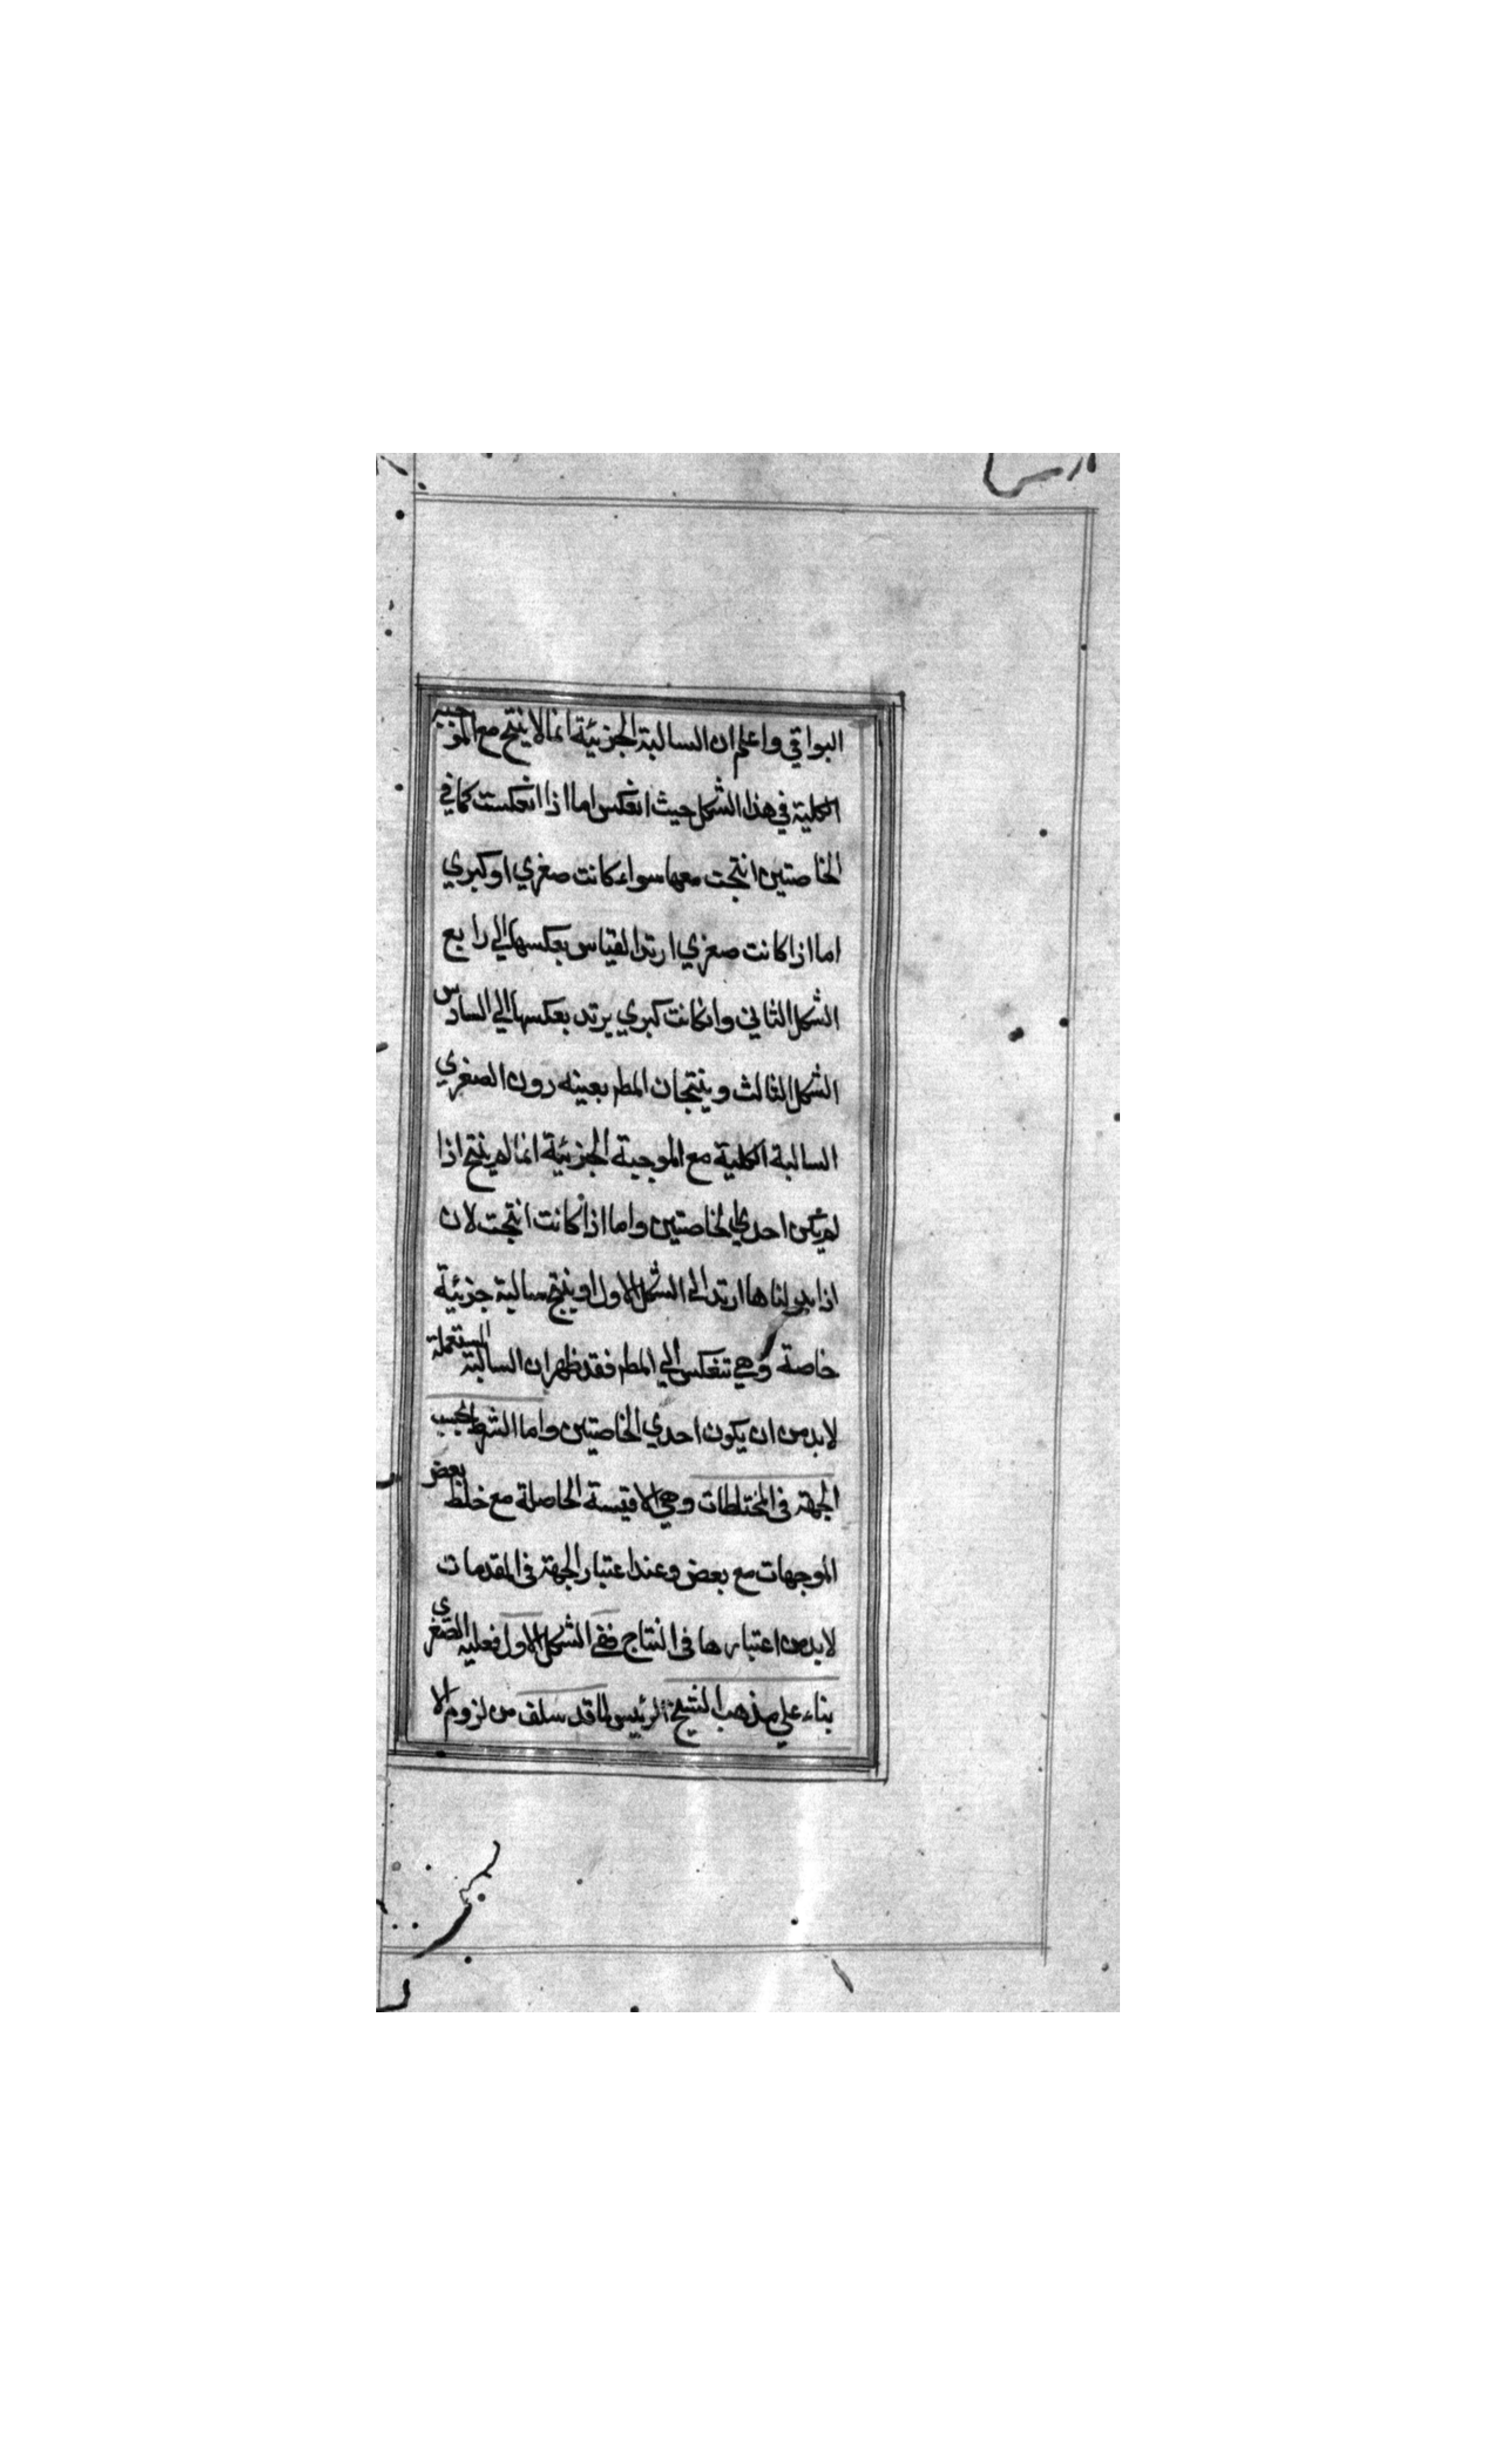 البواقي واعلم ان السالبة الجزئية انما لا ينتج مع الموجبة
الكلية في هذا الشكل حيث انعكس اما اذا انعكست كما في
الخاصتين انتجت معها سواء كانت صغري او كبري
اما اذا كانت صغري ارتد القياس بعكسها الي رابع
الشكل الثاني وان كانت كبري يرتد بعكسها الي السادس
الشكل الثالث وينتجان المط بعينه دون الصغري
السالبة الكلية مع الموجبة الجزئية انما لم ينتج اذا
لم يكن احدي الخاصتين واما اذا كانت انتجت لان
اذا بدلناها ارتد الي الشكل الاول او ينتج سالبة جزئية
خاصة وهي تنعكس الي المط فقد ظهر ان السالبة المستعملة
لابد من ان يكون احدي الخاصتين واما الشرط بحسب
الجهة في المختلطات وهي الاقيسة الحاصلة مع خلط بعض
الموجهات مع بعض وعند اعتبار الجهة في المقدمات
لابد من اعتبارها في النتاج ففي الشكل الاول فعلية الصغري
بناء علي مذهب الشيخ الرئيس لما قد سلف من لزوم الا